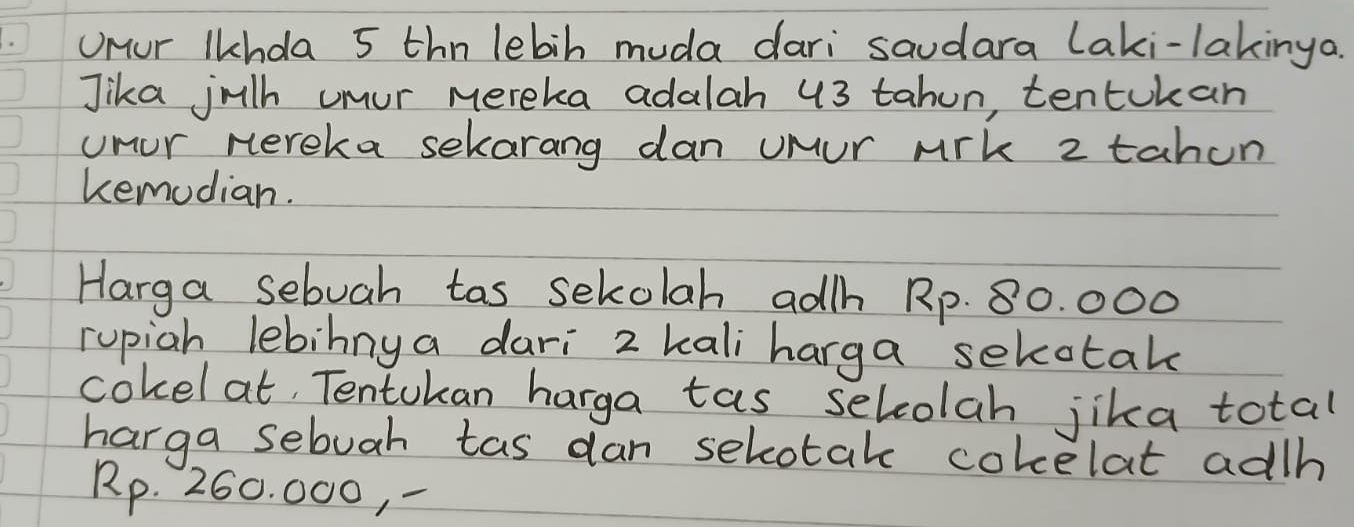 1. Umur Ikhda 5 thn lebih muda dari saudara laki-lakinya.
Jika jmlh umur mereka adalah 43 tahun, tentukan
umur mereka sekarang dan umur mrk 2 tahun
kemudian.
Harga sebuah tas sekolah adlh Rp. 80.000
rupiah lebihnya dari 2 kali harga sekotak
cokelat. Tentukan harga tas sekolah jika total
harga sebuah tas dan sekotak cokelat adlh
Rp. 260.000,-